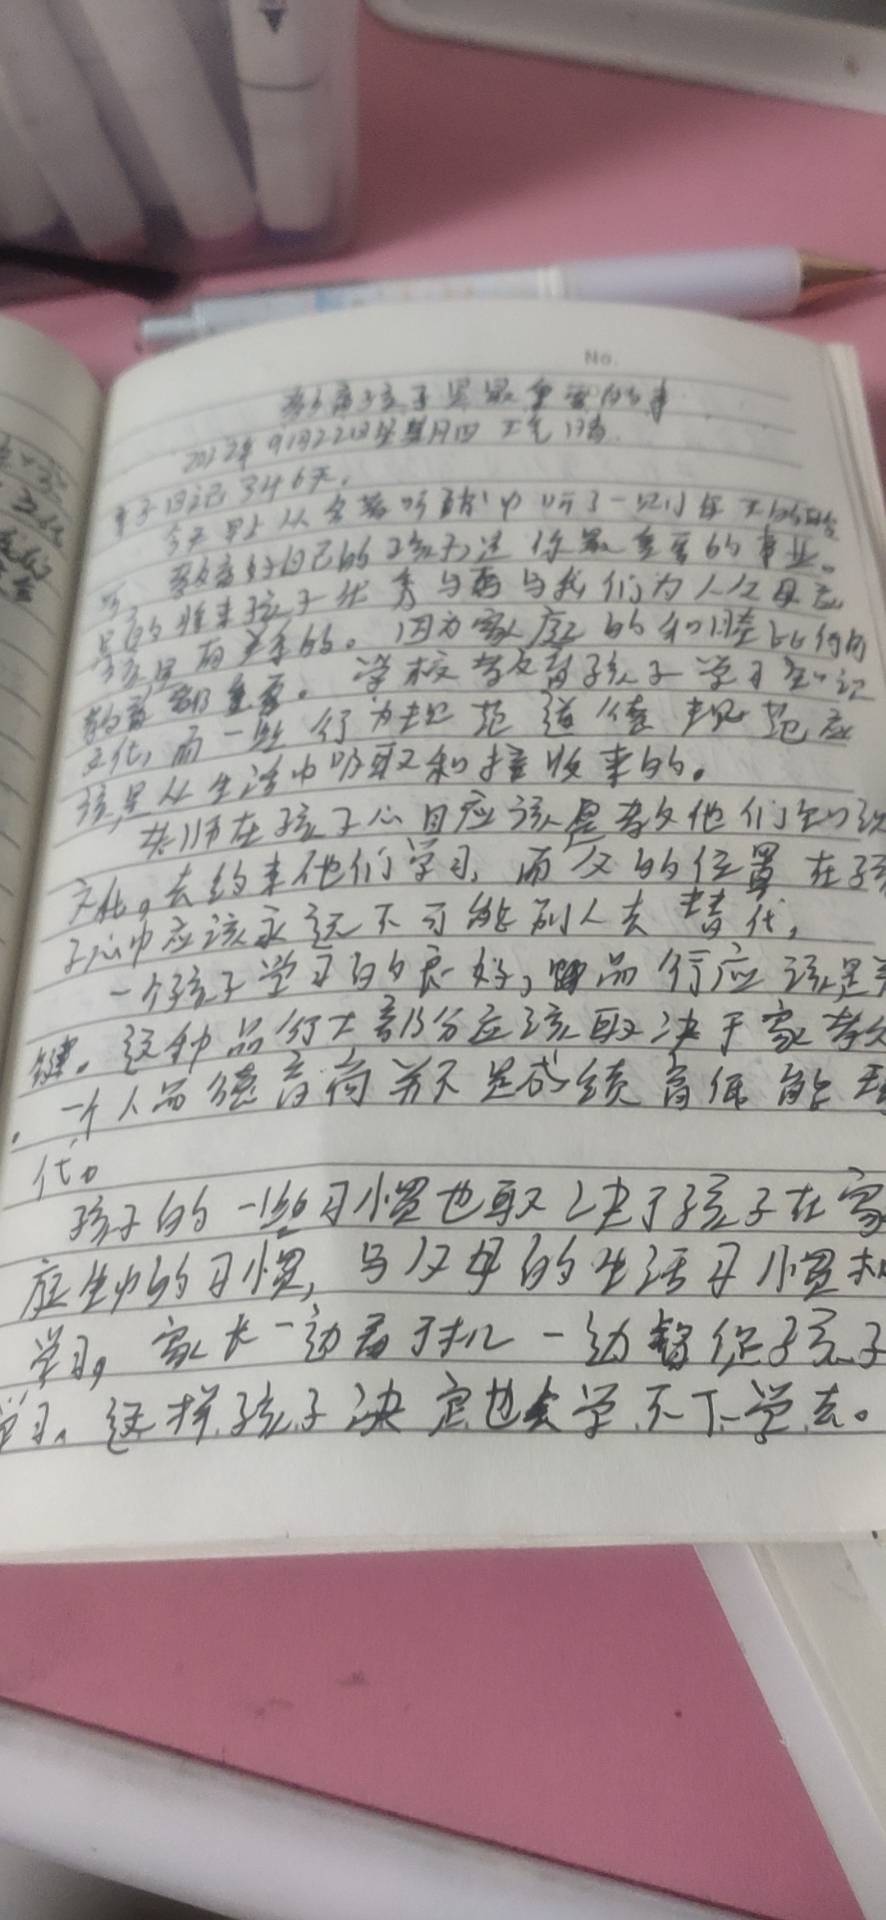 No.
教育孩子是最重要的事
2022年9月22日星期四 天气 晴
亲子日记346天,
今天早上从 听 中听了一
教育好自己的孩子这你最重要的事业。
的将来孩子优秀与否与我们为人父母应
该是有关系的。因为家庭的和睦比任何
教育都重要。学校教育孩子学习知识
文化,而一些行为规范道德规范应
该是从生活中吸取和接收来的。
老师在孩子心目应该是教他们知识
文化。去约束他们学习,而父的位置在孩
子心中应该永远不可能别人去替代,
一个孩子学习的良好,品行应该是关
键。这种品行大部分应该取决于家教
一个人品德高尚并不是成绩高低能
代。
孩子的一些习惯也取决于孩子在家
庭生中的习惯,与父母的生活习惯
学习,家长一边看手机一边督促孩子
学习,这样孩子决定也会学不下学去。